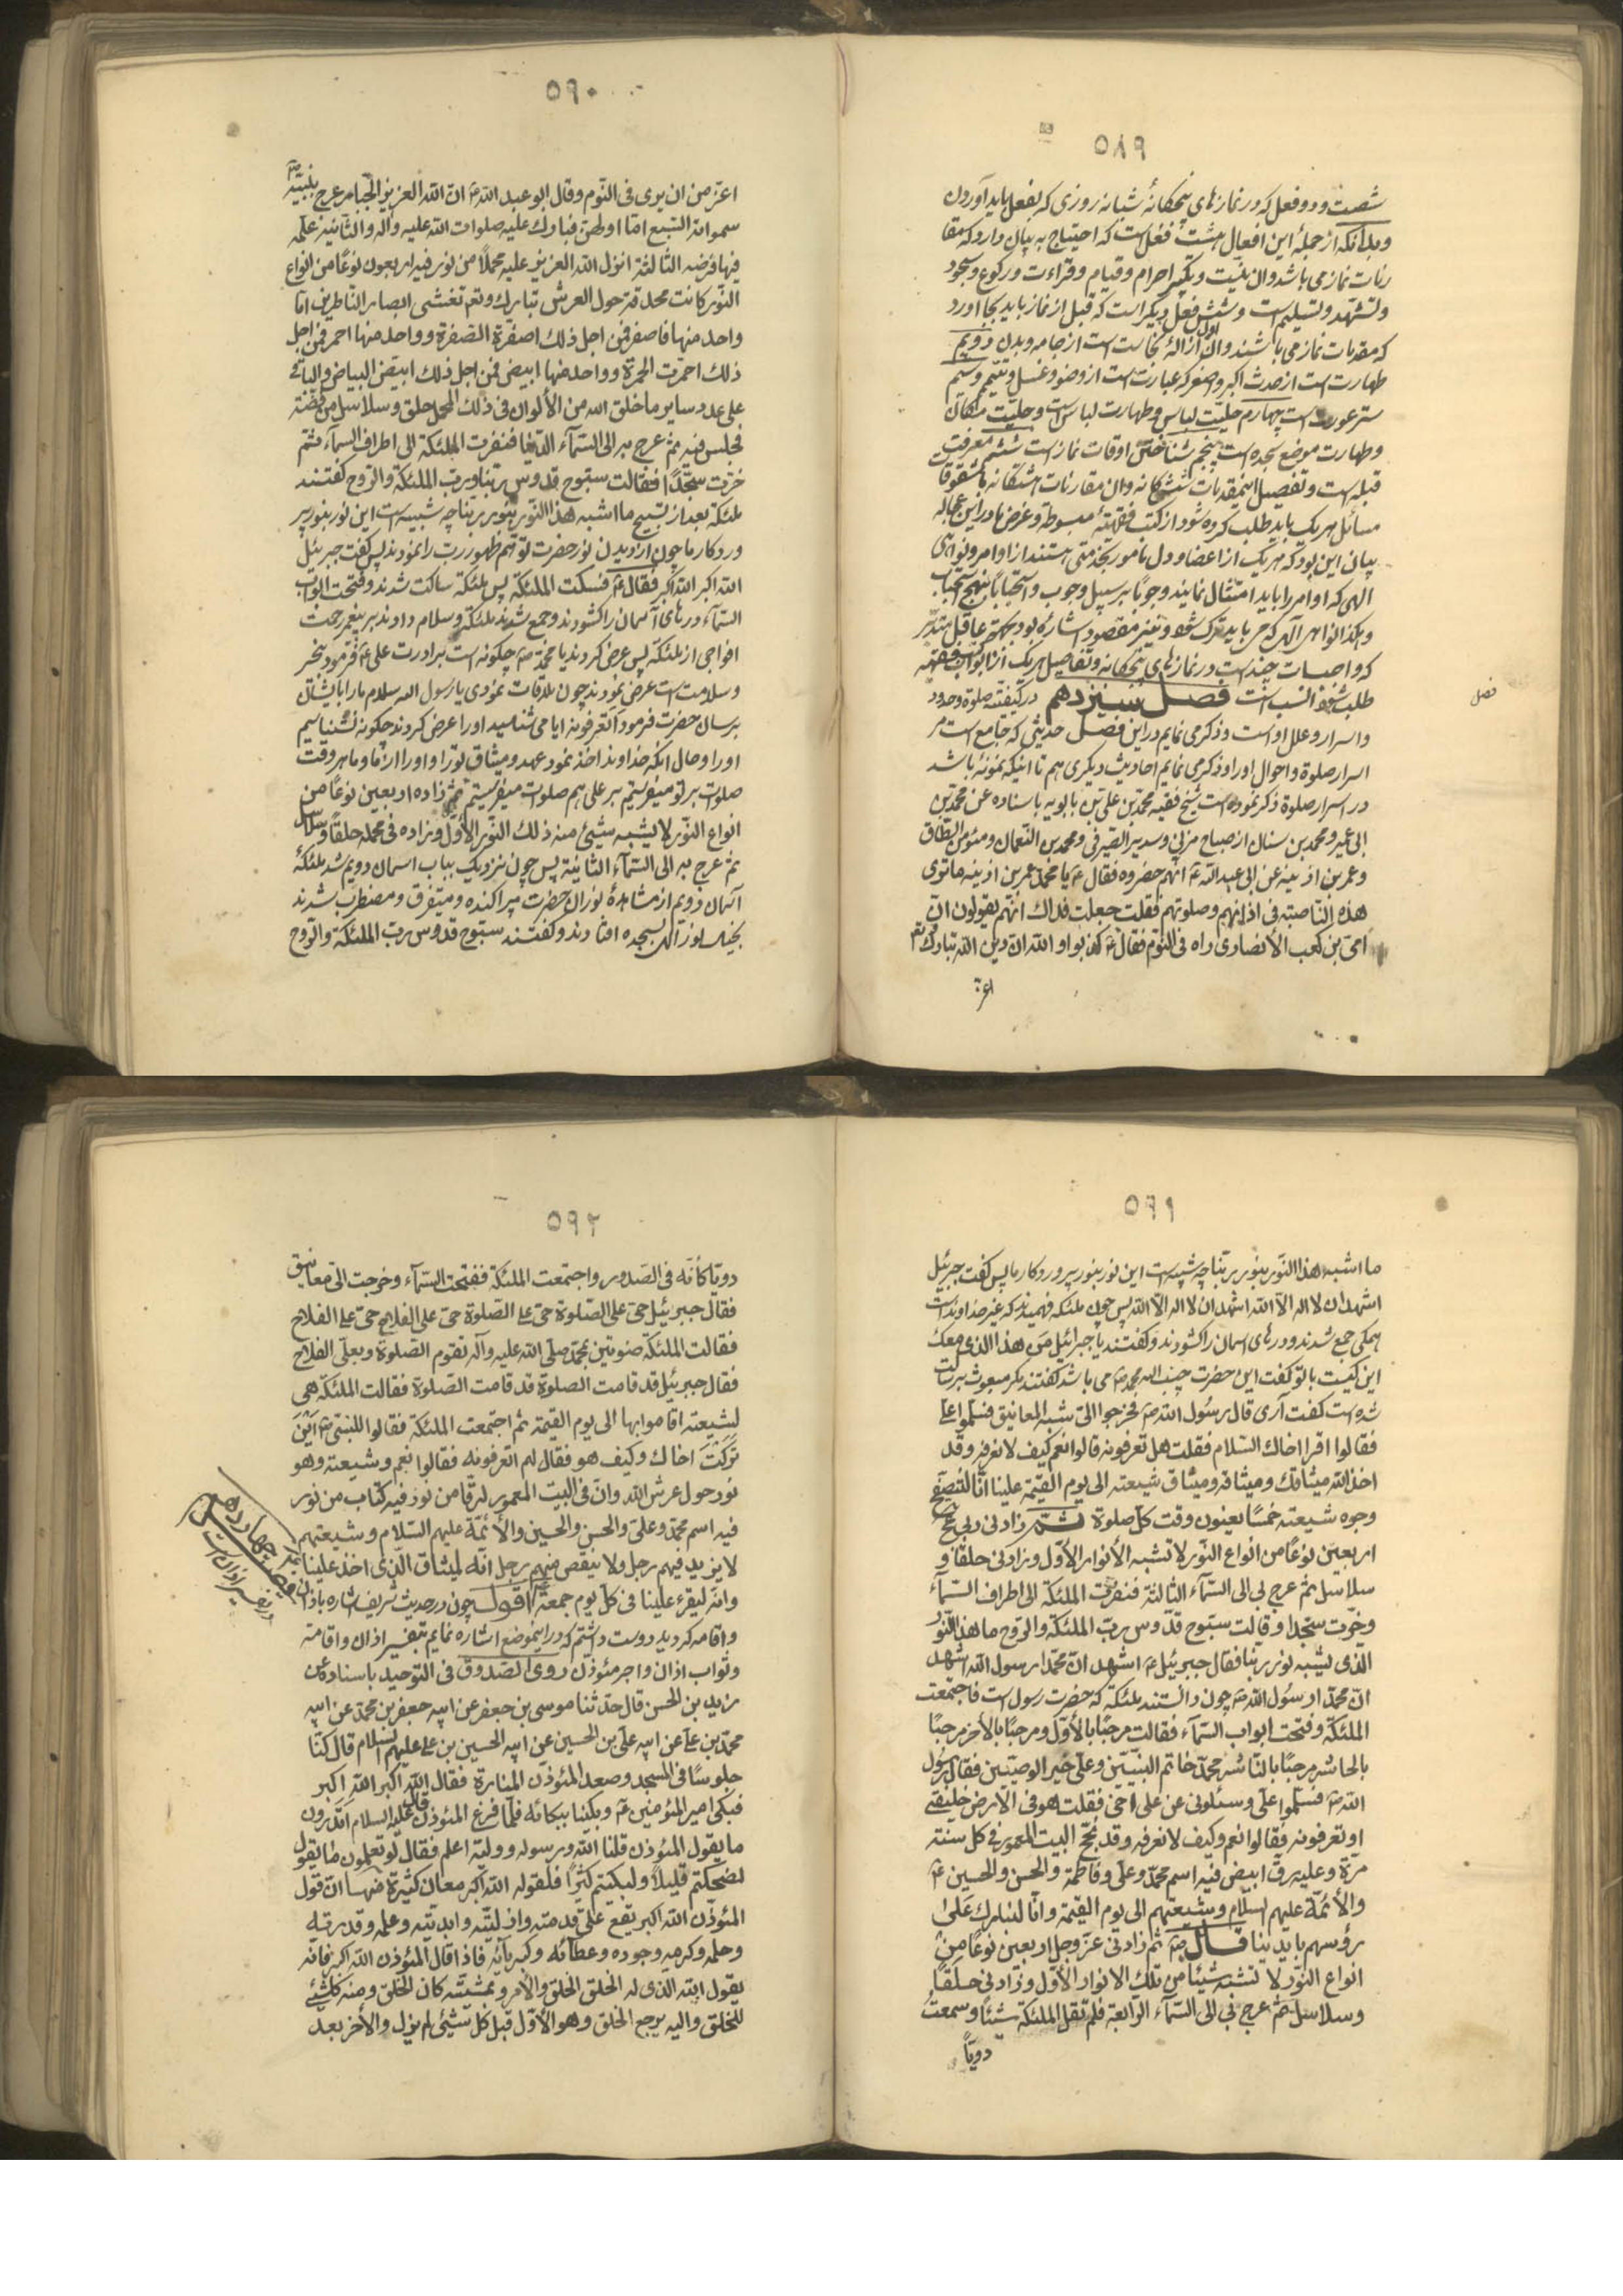 ۵۸۹
شصت و دو فعل که در نمازهای پنجکانهٔ شبانه روزی که بفعل باید آوردن
و بدانکه از جملهٔ این افعال هشت فعل است که احتیاج به بیان دارد که مقا
رنات نماز می باشد و ان نیّت و تکبیر احرام و قیام و قراءت و رکوع و سجود
و تشهّد و تسلیم است و شش فعل دیکر است که قبل از نماز باید بجا اورد
که مقدمات نماز می باشند و ان اول ازالهٔ نجاست است از جامه و بدن دویم
طهارت است از حدث اکبر و اصغر که عبارت است از وضو و غسل و تیمّم و سیّم
ستر عورت است چهارم حلیّت لباس و طهارت لباس است و حلیّت مکان
و طهارت موضع سجده است پنجم شناختن اوقات نماز است ششم معرفت
قبله است و تفصیل اینمقدمات ششکانه و ان مقارنات هشتکانه با شقوقات
مسائل هریک باید طلب کرده شود از کتب فقهیّهٔ مبسوطه و غرض ما در این عجاله
بیان این بود که هریک از اعضا و دل مامور بخدمتی هستند از اوامر و نواهی
الهی که اوامر را باید امتثال نمایند وجوبًا بر سبیل وجوب و استحبابًا بنهج استحباب
و هکذا نواهی الهی که می باید ترک شود و نیز مقصود اشاره بود بجهة عاقل متدبّر
که واجبات چند است در نمازهای پنجکانه و تفاصیل هریک از ابواب فقهیّه
طلب شود انسب است فصل سیزدهم در کیفیّة صلوة و حدود
فصل
و اسرار و علل او است و ذکر می نمایم در این فصل حدیثی که جامع است مر
اسرار صلوة و احوال او را و ذکر می نمایم احادیث دیکری هم تا اینکه نمونهٔ باشد
در اسرار صلوة ذکر نموده است شیخ فقیه محمد بن علی بن بابویه باسناده عن محمد بن
ابی عمیر و محمد بن سنان از صباح مزنی و سدیر الصیرفی و محمد بن النّعمان و مئومن الطّاق
و عمر بن اذینه عن ابی عبد اللّه ع انّهم حضروه فقال ع یا محمد عمر بن اذینه ما تروی
هذه النّاصبة فی اذانهم و صلوتهم فقلت جعلت فداك انّهم یقولون انّ
امیّ بن کعب الأنصاری راه فی النّوم فقال ع کذبوا و اللّه ان دین اللّه تبارك و تع
اعزّ
۵۹۰
اعزّ من ان یری فی النّوم و قال ابو عبد اللّه ع انّ اللّه العزیز الجّبار عرج بنبیّه ص
سمواته السّبع امّا اولهنّ فبارك علیه صلوات اللّه علیه و آله و الثّانیة علّمه
فیها فرضه الثّالثة انزل اللّه العزیز علیه محملًا من نور فیه اربعون نوعًا من انواع
النّور کانت محدقة حول العرش تبارك و تع تغشی ابصار النّاظرین امّا
واحد منها فاصفر فمن اجل ذلك اصفرّة الصّفرة و واحد منها احمر فمن اجل
ذلك احمرّت الحمرة و واحد منها ابیض فمن اجل ذلك ابیضّ البیاض و الباقی
علی عدد سایر ما خلق اللّه من الألوان فی ذلك المحمل حلق و سلاسل من فضّة
فجلس فیه ثمّ عرج به الی السّمآء الدّنیا فنفرت الملئکة الی اطراف السّمآء ثمّ
خرّت سجّدًا فقالت سبّوح قدّوس ربّنا و ربّ الملئکة و الرّوح کفتند
ملئکه بعد از تسبیح ما اشبه هذا النّور بنور ربّنا چه شبیه است این نور بنور پر
وردکار ما چون از دیدن نور حضرت توهّم ظهور ربّ را نمودند پس کفت جبرئیل
اللّه اکبر اللّه اکبر فقال ع فسکت الملئکة پس ملئکه ساکت شدند و فتحت ابواب
السّمآء درهای آسمان را کشودند و جمع شدند ملئکه و سلام دادند بر پیغمبر رحمت
افواجی از ملئکه پس عرض کردند یا محمّد ص چکونه است برادرت علی ع فرمود بخیر
و سلامت است عرض نمودند چون ملاقات نمودی یا رسول اللّه سلام ما را بایشان
برسان حضرت فرمود اتعرفونه ایا می شناسید او را عرض کردند چکونه نشناسیم
او را و حال انکه خداوند اخذ نمود عهد و میثاق تو را و او را از ما و ما هر وقت
صلوات بر تو میفرستیم بر علی هم صلوات میفرستیم ثمّ زاده اربعین نوعًا من
انواع النّور لا یشبه شیئ منه ذلك النّور الأوّل و زاده فی محمله حلقًا و سلاسل
ثم عرج به الی السّمآء الثانیة پس چون نزدیك بباب اسمان دویم شد ملئکهٔ
اسمان دویم از مشاهدهٔ نور ان حضرت پراکنده و متفرق و مضطرب شدند
بسجده افتادند و کفتند سبّوح قدّوس ربّ الملئکة و الرّوح
۵۹۱
ما اشبه هذا النّور بنور ربّنا چه شبیه است این نور بنور پروردکار ما پس کفت جبرئیل
اشهد ان لا اله الّا اللّه اشهد ان لا اله الّا اللّه پس چون ملئکه فهمیدند که غیر خداوند است
همکی جمع شدند و درهای اسمان را کشودند و کفتند یا جبرائیل من هذا الذی معك
این کیست با تو کفت این حضرت حبیب اللّه محمد ص می باشد کفتند مکر مبعوث برسالت
شده است کفت آری قال رسول اللّه ص فخرجوا الیّ شبه المعانیق فسلّموا علیّ
فقالوا اقرا اخاك السّلام فقلت هل تعرفونه قالوا نعم کیف لا نعرفه و قد
اخذ اللّه میثاقك و میثاقه و میثاق شیعته الی یوم القیمة علینا انّا لنتصفّح
وجوه شیعته خمسًا یعنون وقت کلّ صلوة ثمّ زادنی ربی ع ج
اربعین نوعًا من انواع النّور لا تشبه الأنوار الأوّل و زادنی حلقًا و
سلاسل ثمّ عرج بی الی السّمآء الثالثة فنفرت الملئکة الی اطراف السّمآء
و خرّت سجّدا و قالت سبّوح قدّوس ربّ الملئکة و الرّوح ما هذا النّور
الذی یشبه نور ربّنا فقال جبرئیل ع اشهد انّ محمّدا رسول اللّه اشهد
انّ محمّدا رسول اللّه ص چون دانستند ملئکه که حضرت رسول است فاجتمعت
الملئکة و فتحت ابواب السّمآء فقالت مرحبًا بالأوّل و مرحبًا بالأخر مرحبًا
بالحاشر مرحبًا بالنّاشر محمّد خاتم النّبیّین و علیّ خیر الوصیّین فقال رسول
اللّه ص فسلّموا علیّ و سئلونی عن علی اخی فقلت هو فی الأرض خلیفتی
او تعرفونه فقالوا نعم و کیف لا نعرفه و قد نحجّ البیت المعمور فی کل سنة
مرّة و علیه رقّ ابیض فیه اسم محمّد و علی و فاطمة و الحسن و الحسین ع
و الأئمّة علیهم السلام و شیعتهم الی یوم القیمة و انّا لنبارك علی
رؤسهم بایدینا قال ص ثم زادنی عزّ و جل اربعین نوعًا من
انواع النّور لا تشبه شیئًا من تلك الانوار الأوّل و زادنی حلقًا
و سلاسل ثمّ عرج بی الی السّمآء الرّابعة فلم تقل الملئکة شیئًا و سمعت
دویّاً
۵۹۲
دویّا کانّه فی الصّدور و اجتمعت الملئکة ففتحت السّمآء و خرجت الیّ معانیق
فقال جبرئیل حی علی الصّلوة حی علی الصّلوة حی علی الفلاح حی علی الفلاح
فقالت الملئکة صوتین بمحمّد صلّی اللّه علیه و آله تقوم الصّلوة و بعلیّ الفلاح
فقال جبرئیل قد قامت الصلوة قد قامت الصّلوة فقالت الملئکة هی
لشیعته اقاموا بها الی یوم القیمة ثم اجتمعت الملئکة فقالوا للنّبی ص این
ترکت اخاك و کیف هو فقال لهم اتعرفونه فقالوا نعم و شیعته و هو
نور حول عرش اللّه و انّ فی البیت المعمور لرقّا من نور فیه کتاب من نور
فیه اسم محمّد و علی و الحسن و الحسین و الأئمّة علیهم السّلام و شیعتهم
لا یزید فیهم رجل و لا ینقص منهم رجل انّه لمیثاق الّذی اخذ علینا
و انّه لیقرء علینا فی کلّ یوم جمعة اقول چون در حدیث شریف اشاره باذان
و اقامه کردید دوست داشتم که در اینموضع اشاره نمایم بتفسیر اذان و اقامة
و ثواب اذان و اجر مئوذن روی الصّدوق فی التوحید باسناده عن
زید بن الحسن قال حدّثنا موسی بن جعفر عن ابیه جعفر بن محمد عن ابیه
محمد بن علی عن ابیه علی بن الحسین عن ابیه الحسین بن علی علیهم السلام قال کنّا
جلوسًا فی المسجد و صعد المئوذّن المنارة فقال اللّه اکبر اللّه اکبر
فبکی امیر المئومنین ع و بکینا ببکائه فلمّا فرغ المئوذّن قال علیه السلام اتدرون
ما یقول المئوذن قلنا اللّه و رسوله و ولیّه اعلم فقال لو تعلمون ما یقول
لضحکتم قلیلًا و لبکیتم کثیرًا فلقوله اللّه اکبر معان کثیرة منها انّ قول
المئوذّن اللّه اکبر یقع علی قدمته و ازلیّته و ابدیّته و علمه و قدرته
و حلمه و کرمه و جوده و عطائه و کبریائه فاذا قال المئوذن اللّه اکبر فانّه
یقول اللّه الذی له الخلق و الأمر و بمشیّته کان الخلق و منه کلّ شیئ
للخلق و الیه یرجع الخلق و هو الأوّل قبل کل شیئ لم یزل و الأخر بعد